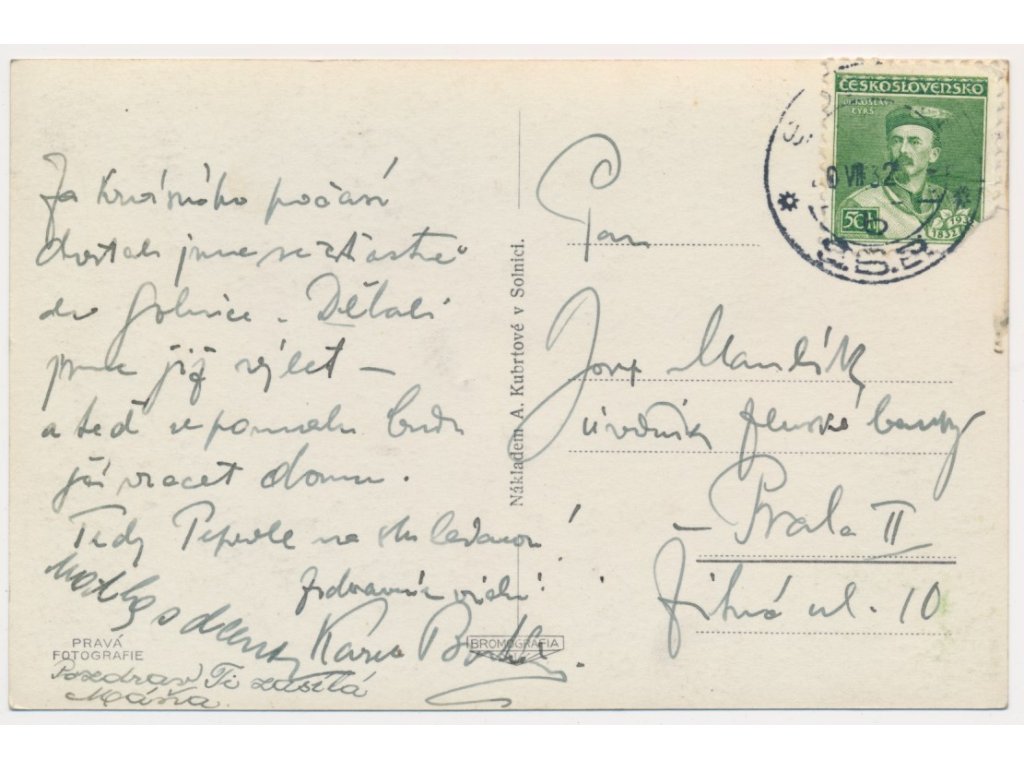 Za krásného počasí
dostali jsme se šťastně
do Solnice. Dělali
jsme již výlet –
a teď se pomalu budu
již vracet domů.
Tedy Pepode na shledanou!
srdečně vás zdraví
Karel
Pozdrav Ti zasílá
Máňa.
PRAVÁ
FOTOGRAFIE
BROMOGRAFIA
Nákladem A. Kubrtové v Solnici.
ČESKOSLOVENSKO
MIROSLAV
TYRŠ
50 h
1832 1932
VII 32
Pan
Josef
úředník Zemské banky
– Praha II
Žitná ul. 10